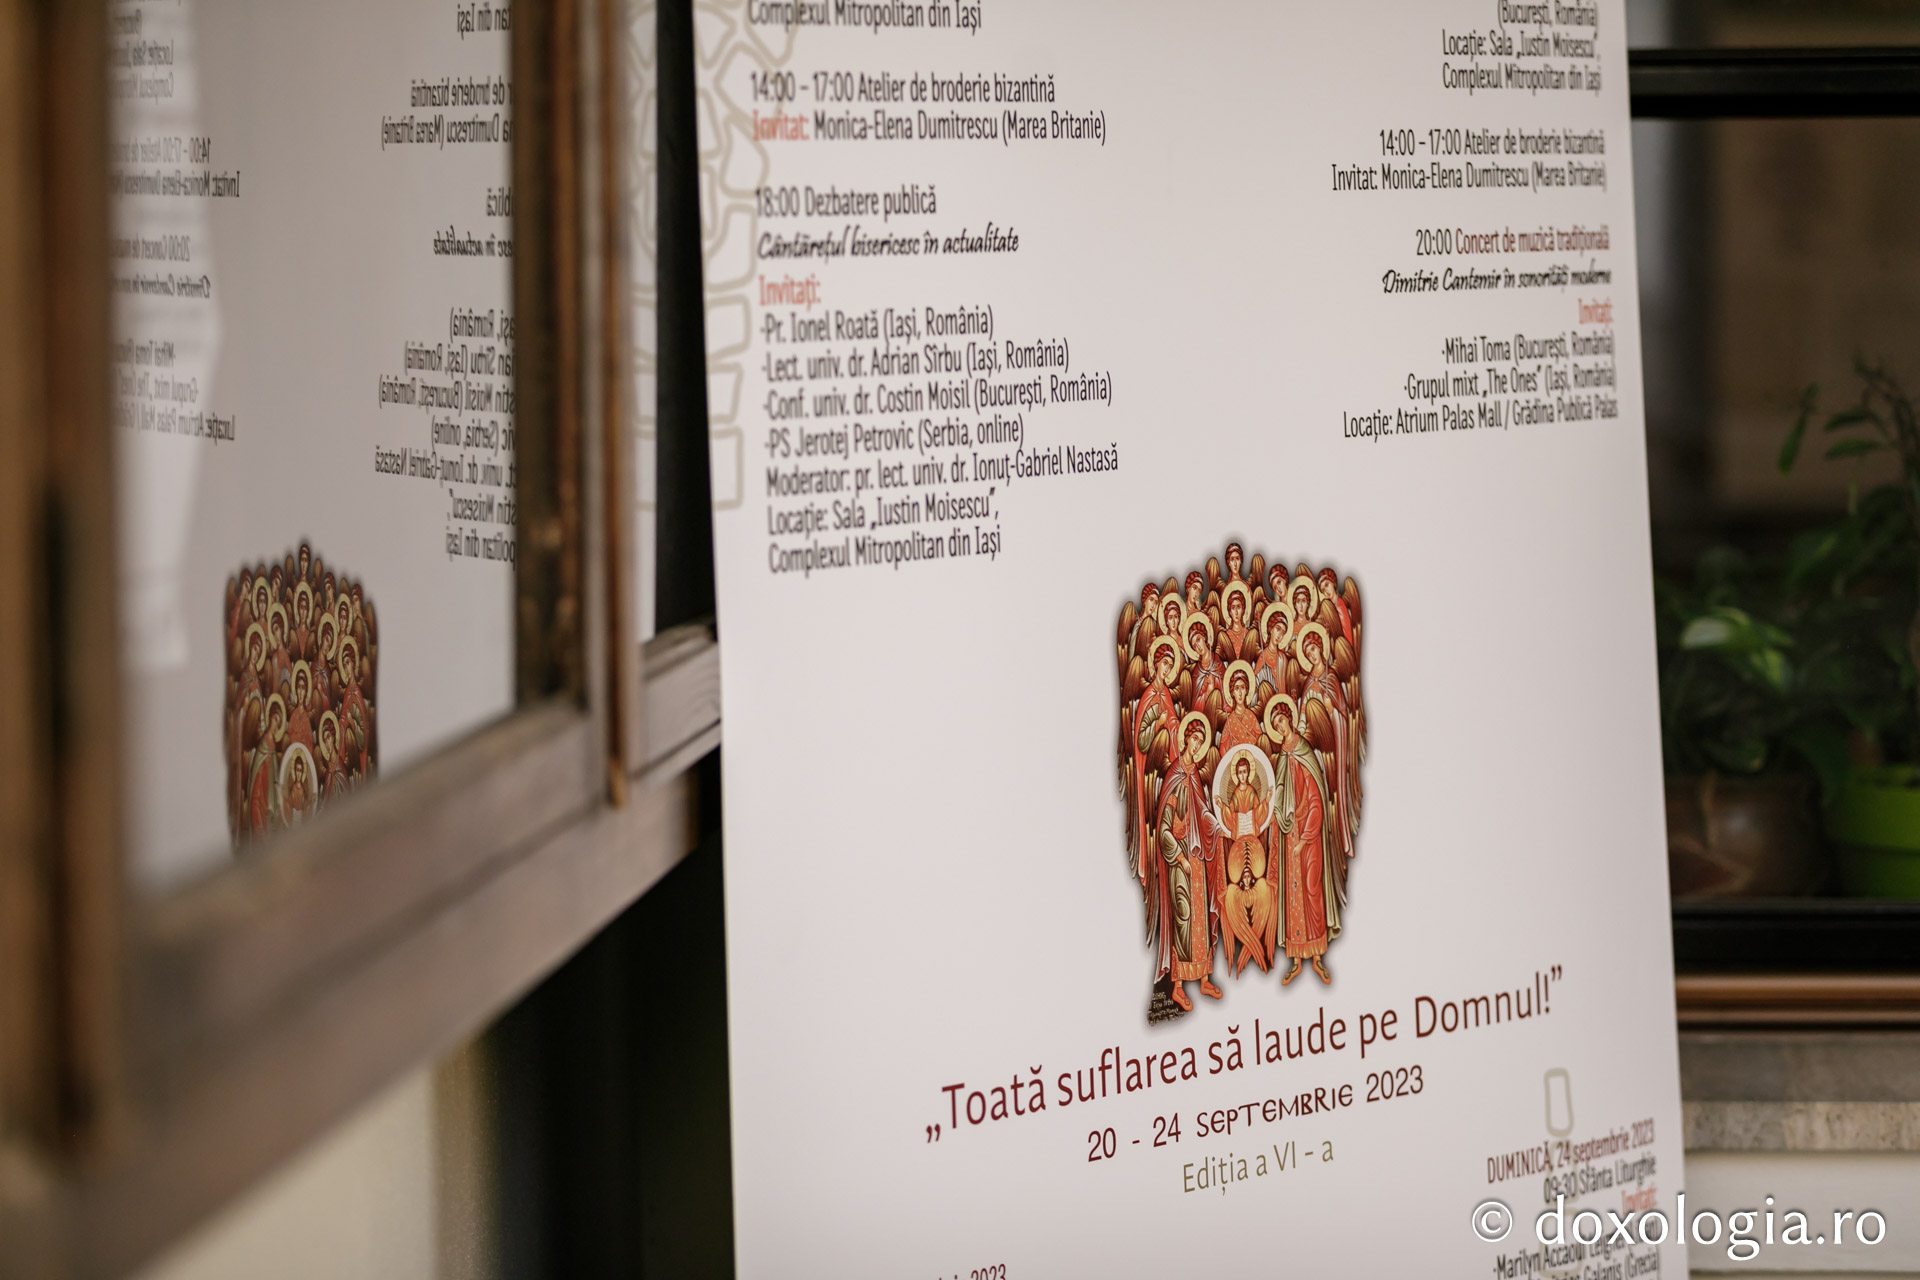 Complexul Mitropolitan din Iași
14:00 – 17:00 Atelier de broderie bizantină
Invitat: Monica-Elena Dumitrescu (Marea Britanie)
18:00 Dezbatere publică
Cântărețul bisericesc în actualitate
Invitați:
-Pr. Ionel Roată (Iași, România)
-Lect. univ. dr. Adrian Sîrbu (Iași, România)
-Conf. univ. dr. Costin Moisil (București, România)
-PS Jerotej Petrovic (Serbia, online)
Moderator: pr. lect. univ. dr. Ionuț-Gabriel Nastasă
Locație: Sala „Iustin Moisescu”,
Complexul Mitropolitan din Iași
(București, România)
Locație: Sala „Iustin Moisescu”,
Complexul Mitropolitan din Iași
14:00 – 17:00 Atelier de broderie bizantină
Invitat: Monica-Elena Dumitrescu (Marea Britanie)
20:00 Concert de muzică tradițională
Dimitrie Cantemir în sonorități moderne
Invitați:
-Mihai Toma (București, România)
-Grupul mixt „The Ones” (Iași, România)
Locație: Atrium Palas Mall / Grădina Publică Palas
„Toată suflarea să laude pe Domnul!”
20 - 24 SEPTEMBRIE 2023
Ediția a VI - a
DUMINICĂ, 24 septembrie 2023
09:30 Sfânta Liturghie
Invitați:
-Marilyn Accaoui
Galanis (Grecia)
2023
© doxologia.ro